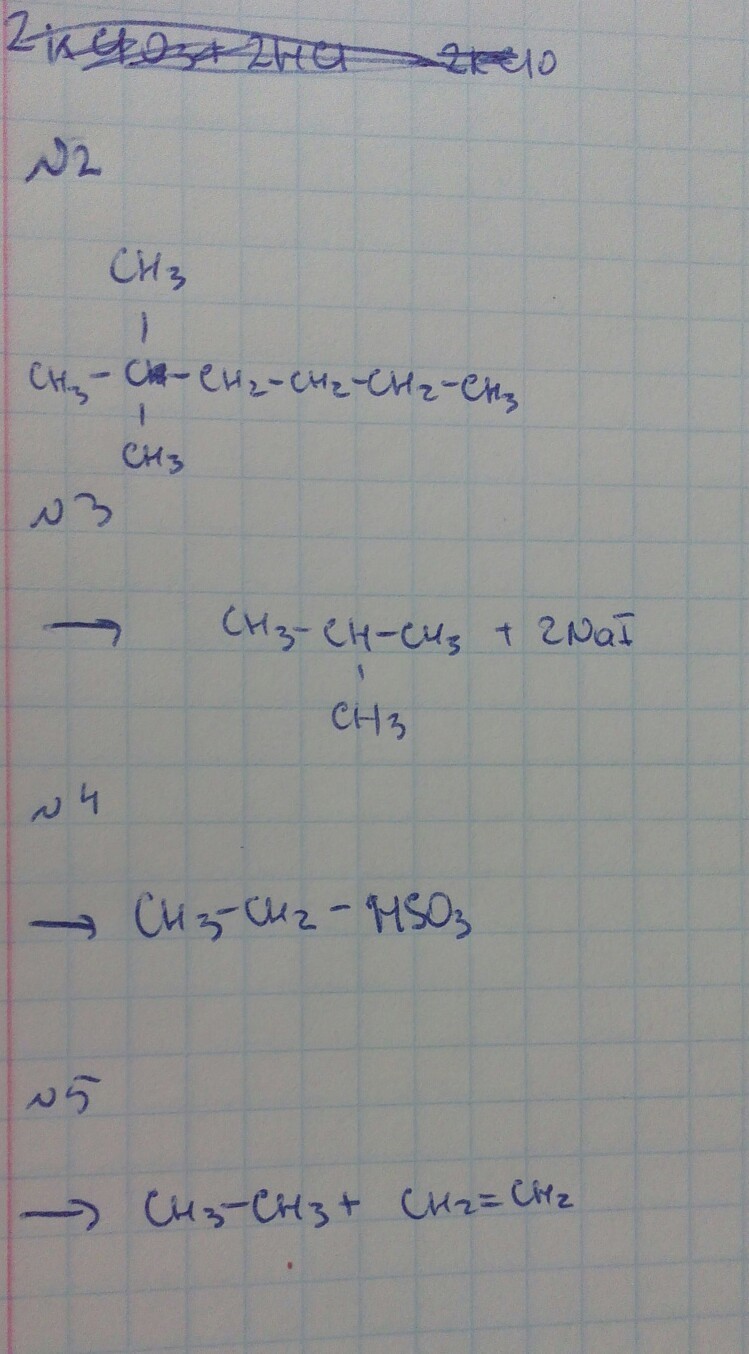 2KClO3 + 2HCl 2KClO
N2
CH3
|
CH3-C-CH2-CH2-CH2-CH3
|
CH3
N3
→ CH3-CH-CH3 + 2NaI
|
CH3
N4
→ CH3-CH2-HSO3
N5
→ CH3-CH3+ CH2=CH2